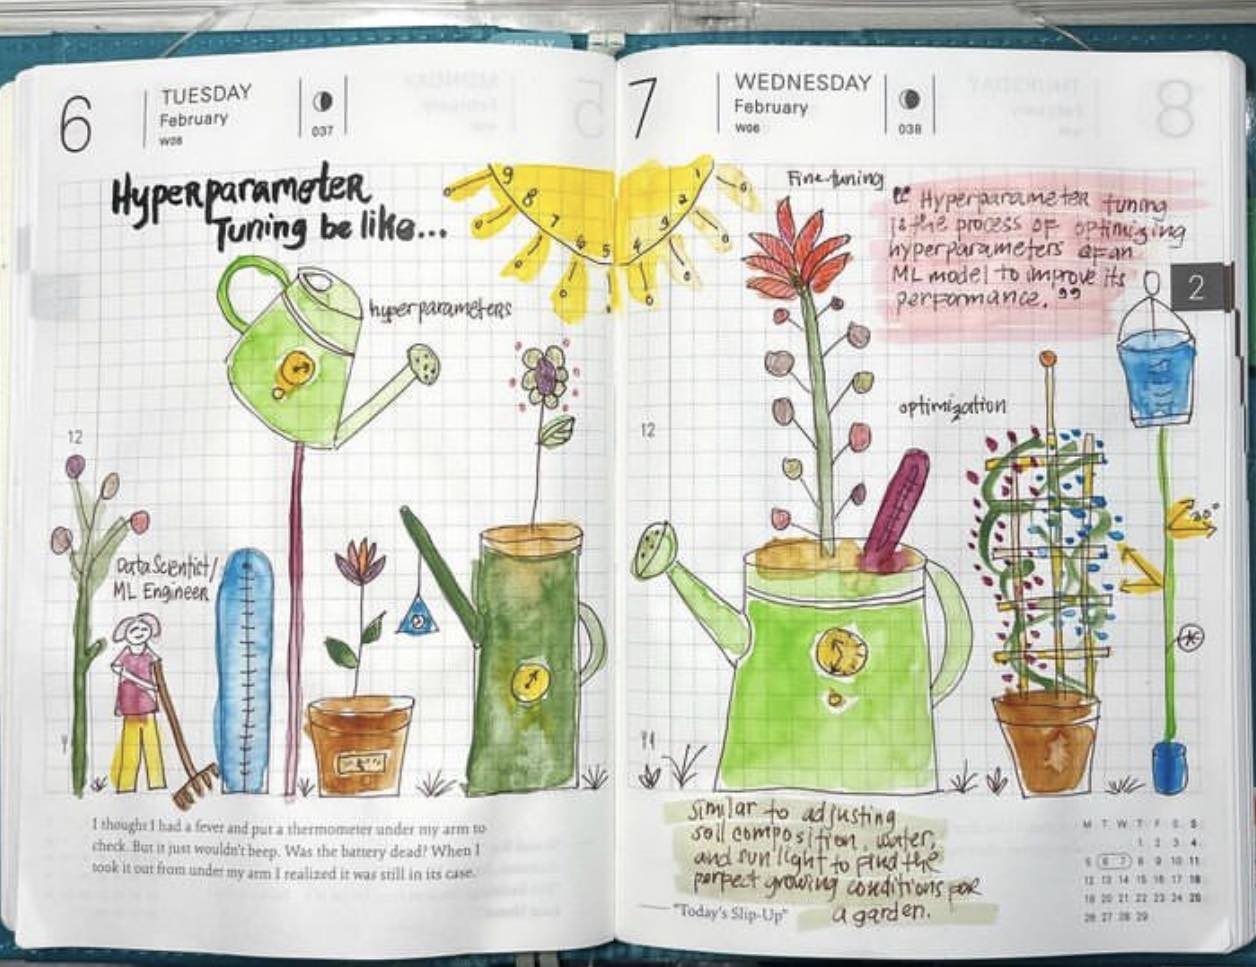 6
TUESDAY
February
W06
037
Hyperparameter
Tuning be like...
9
8
7
6
5
hyperparameters
12
Data Scientist/
ML Engineer
I thought I had a fever and put a thermometer under my arm to
check. But it just wouldn't beep. Was the battery dead? When I
took it out from under my arm I realized it was still in its case.
7
WEDNESDAY
February
W06
038
1
2
3
4
Fine-tuning
“Hyperparameter tuning
is the process of optimizing
hyperparameters of an
ML model to improve its
performance.”
2
optimization
12
30°
Similar to adjusting
soil composition, water,
and sunlight to find the
perfect growing conditions for
a garden.
"Today's Slip-Up"
M T W T F S S
1 2 3 4
5 6 7 8 9 10 11
12 13 14 15 16 17 18
19 20 21 22 23 24 25
26 27 28 29